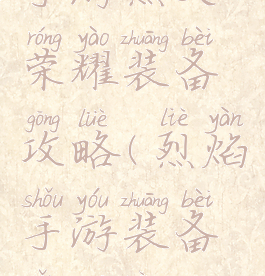 róng yào zhuāng bèi
荣耀装备
gōng lüè liè yàn
攻略(烈焰
shǒu yóu zhuāng bèi
手游装备